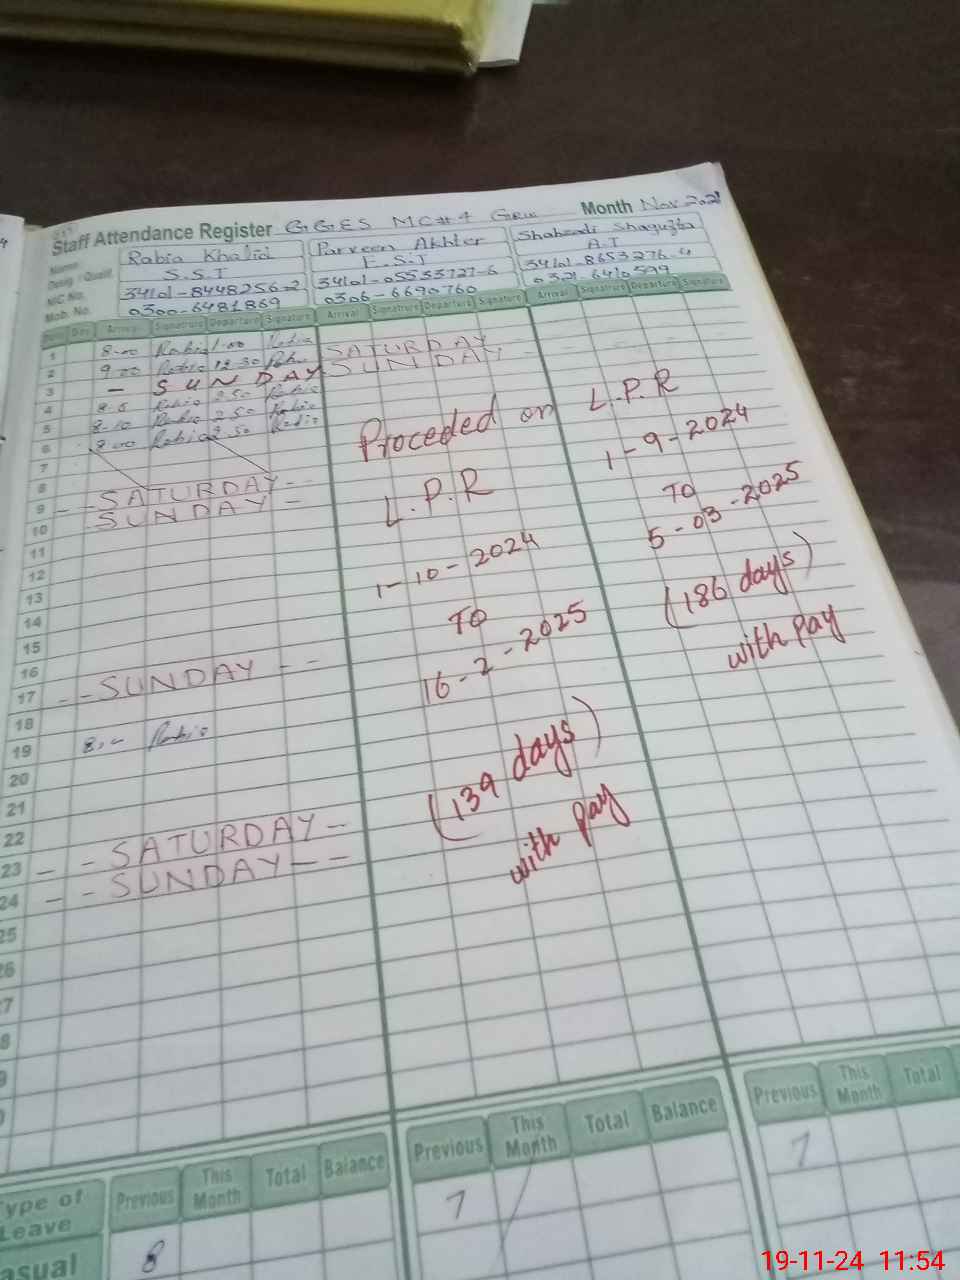 Staff Attendance Register GGES MC#4 Month Nov 202
Name Rabia Khalid Parveen Akhter Shahzadi Shagufta
Desig / Qualif. S.S.T E.S.T A.T
NIC No. 34101-8448256-2 34101-05533727-6 34101-8653276-4
Mob. No. 0300-6481869 0306-6690760 0321-6410599
Date Day Arrival Signature Departure Signature Arrival Signature Departure Signature Arrival Signature Departure Signature
1 8-00 Rabia 1-00 Rabia
2 9 00 Rabia 12 30 Rabia SATURDAY
3 - SUNDAY SUNDAY
4 8-5 Rabia 2 50 Rabia
5 8-10 Rabia 2 50 Rabia
6 8-00 Rabia 2 50 Rabia
7
8
9 - - SATURDAY - -
10 - SUNDAY -
11
12
13
14
15
16
17 - - SUNDAY - -
18
19 8.- Rabia
20
21
22
23 - - SATURDAY -
24 - - SUNDAY - -
25
26
27
28
Proceded on
L.P.R
1-10-2024
TO
16-2-2025
(139 days)
with pay
L.P.R
1-9-2024
TO
5-03-2025
(186 days)
with pay
Type of Leave Previous This Month Total Balance Previous This Month Total Balance Previous This Month Total
Casual 8 7 7
19-11-24 11:54